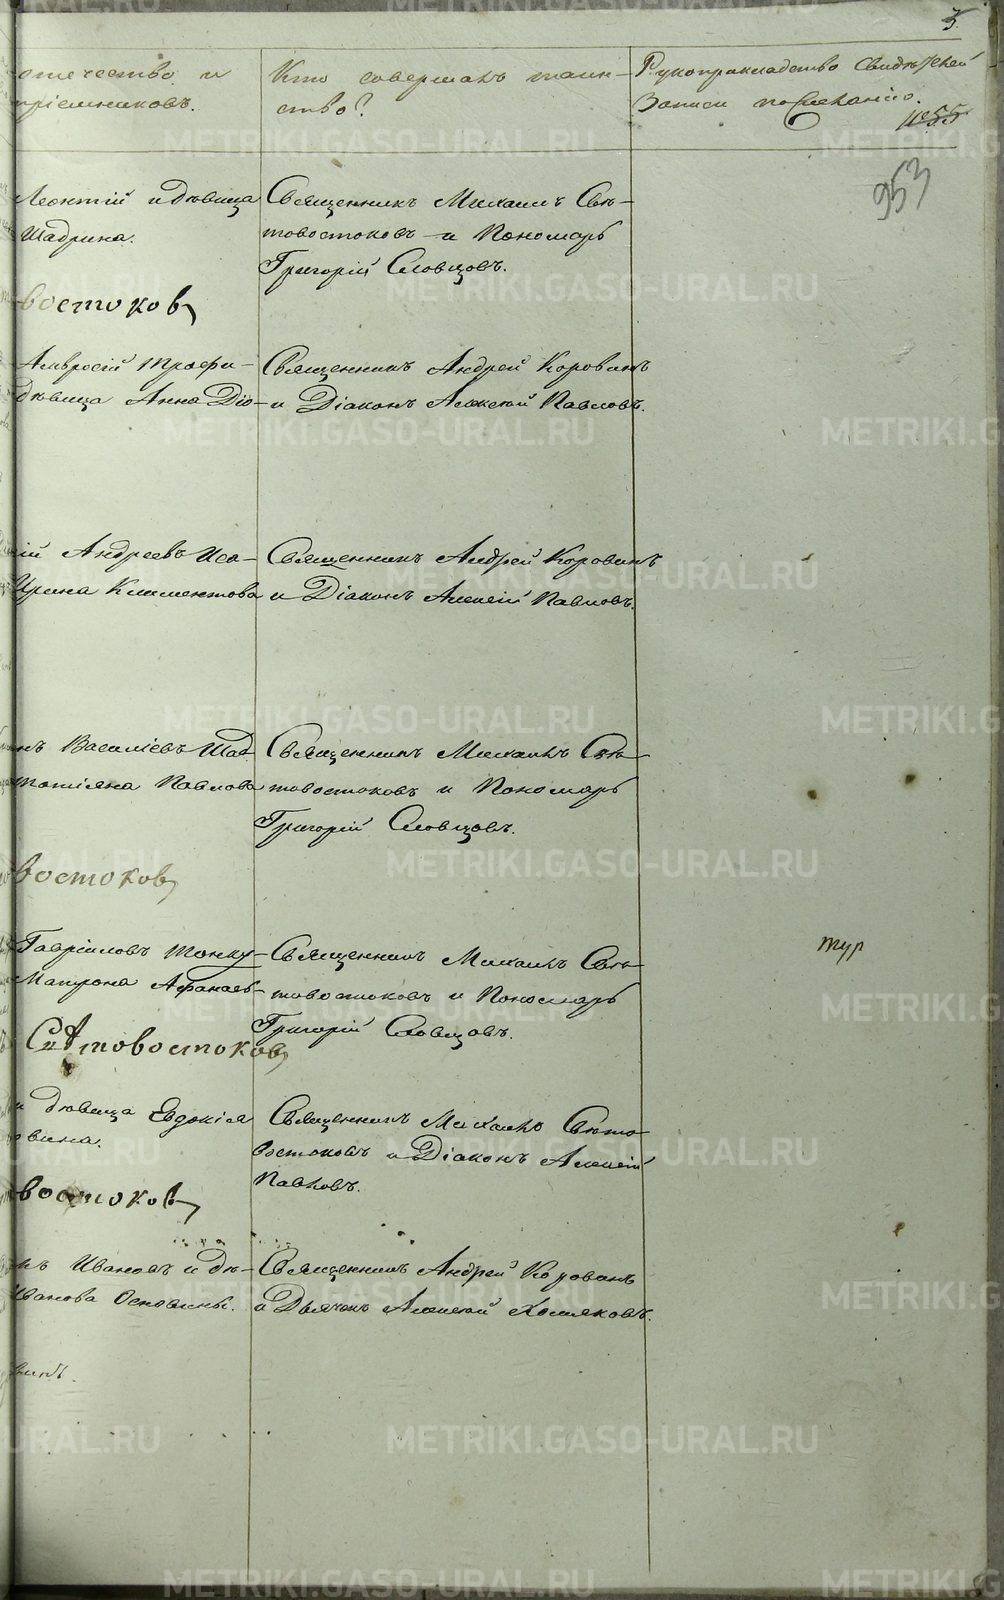 3.
отчество и
пріемниковъ.
Кто совершалъ таин-
ство?
Рукоприкладство Свидѣтелей
Записи по желанію.
№ 55
953
Леонтій и дѣвица
Шадрина.
Священникъ Михаилъ Свѣ-
товостоковъ и Пономарь
Григорій Словцовъ.
востоковъ
Амвросій Трофи-
дѣвица Анна Діо-
Священникъ Андрей Коровинъ
и Діаконъ Алексій Павловъ.
ій Андреевъ Иса-
Ирина Климентова
Священникъ Андрей Коровинъ
и Діаконъ Алексій Павловъ.
нъ Василіевъ Шад
Татіяна Павлова
Священникъ Михаилъ Свѣ-
товостоковъ и Пономарь
Григорій Словцовъ.
востоковъ
Гавріиловъ Тонку-
Матрона Афанась-
Священникъ Михаилъ Свѣ-
товостоковъ и Пономарь
Григорій Словцовъ.
тур
Свѣтовостоковъ
и дѣвица Евдокія
вина.
Священникъ Михаилъ Свѣто-
востоковъ и Діаконъ Алексій
Павловъ.
востоковъ
нъ Ивановъ и дѣ-
Иванова Основины.
Священникъ Андрей Коровинъ
и Дьячекъ Алексій Хомяковъ.
METRIKI.GASO-URAL.RU